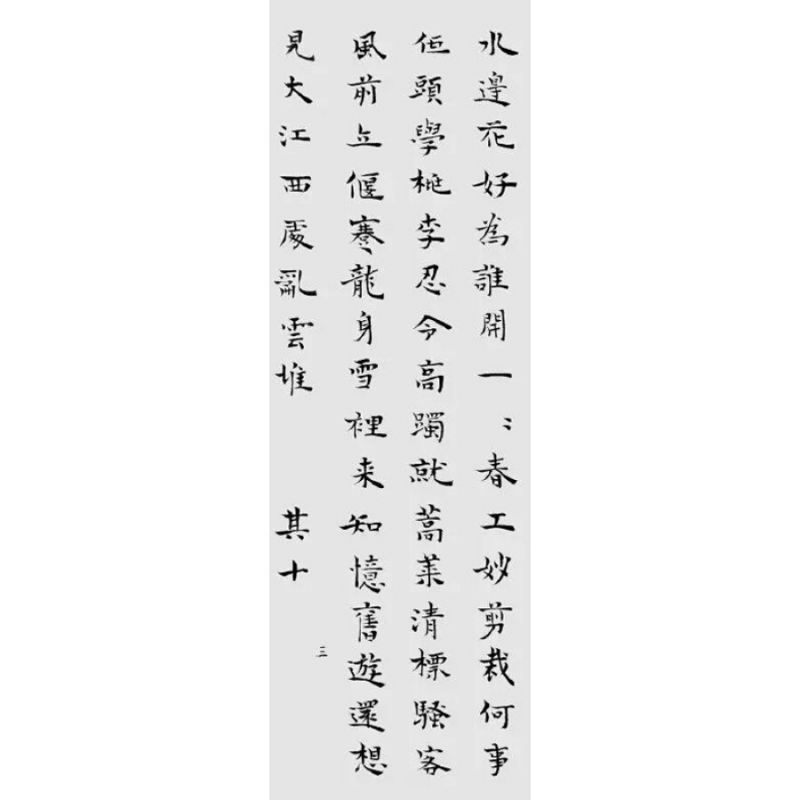 水邊花好為誰開一〻春工妙剪裁何事
低頭學桃李忍令高躅就蒿萊清標騷客
風前立偃蹇龍身雪裡来知憶舊遊還想
見大江西處亂雲堆 其十
三